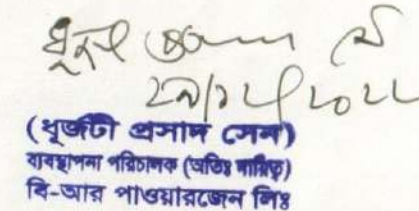 ২৯/১২/২০২২
(ধূর্জটী প্রসাদ সেন)
ব্যবস্থাপনা পরিচালক (অতিঃ দায়িত্ব)
বি-আর পাওয়ারজেন লিঃ